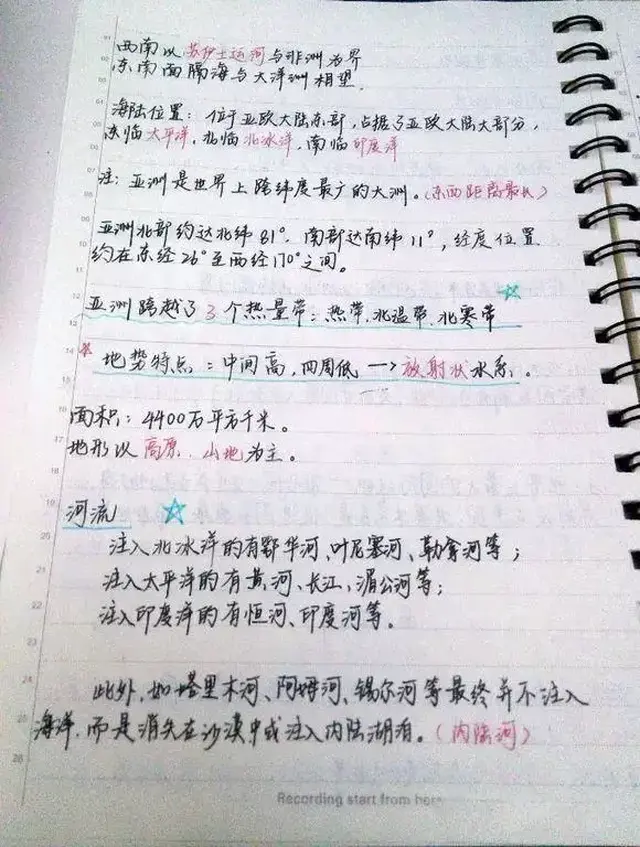 西南以苏伊士运河与非洲为界
东南面隔海与大洋洲相望
海陆位置：位于亚欧大陆东部，占据了亚欧大陆大部分，
东临太平洋，北临北冰洋，南临印度洋
注：亚洲是世界上跨纬度最广的大洲。（东西距离最长）
亚洲北部约达北纬81°，南部达南纬11°，经度位置
约在东经26°至西经170°之间。
亚洲跨越了3个热量带：热带，北温带，北寒带
* 地势特点：中间高，四周低→放射状水系。
面积：4400万平方千米。
地形以高原、山地为主。
河流
注入北冰洋的有鄂毕河、叶尼塞河、勒拿河等；
注入太平洋的有黄河、长江、湄公河等；
注入印度洋的有恒河、印度河等。
此外，如塔里木河、阿姆河、锡尔河等最终并不注入
海洋，而是消失在沙漠中或注入内陆湖泊。（内陆河）
Recording start from here